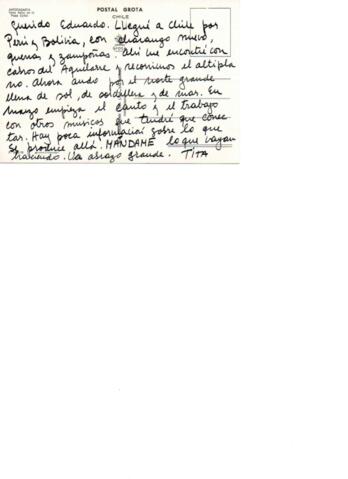 POSTAL GROTA
CHILE
Querido Eduardo. Llegué a Chile por
Perú y Bolivia, con charango nuevo,
quenas y zampoñas. Ahí me encontré con
cabros del Aquelarre y recorrimos el altipla
no. Ahora ando por el norte grande
llena de sol, de cordillera y de mar. En
marzo empieza el canto y el trabajo
con otros músicos que tendré que conec
tar. Hay poca información sobre lo que
se produce allá. MANDAME lo que vayan
haciendo. Un abrazo grande. TITA